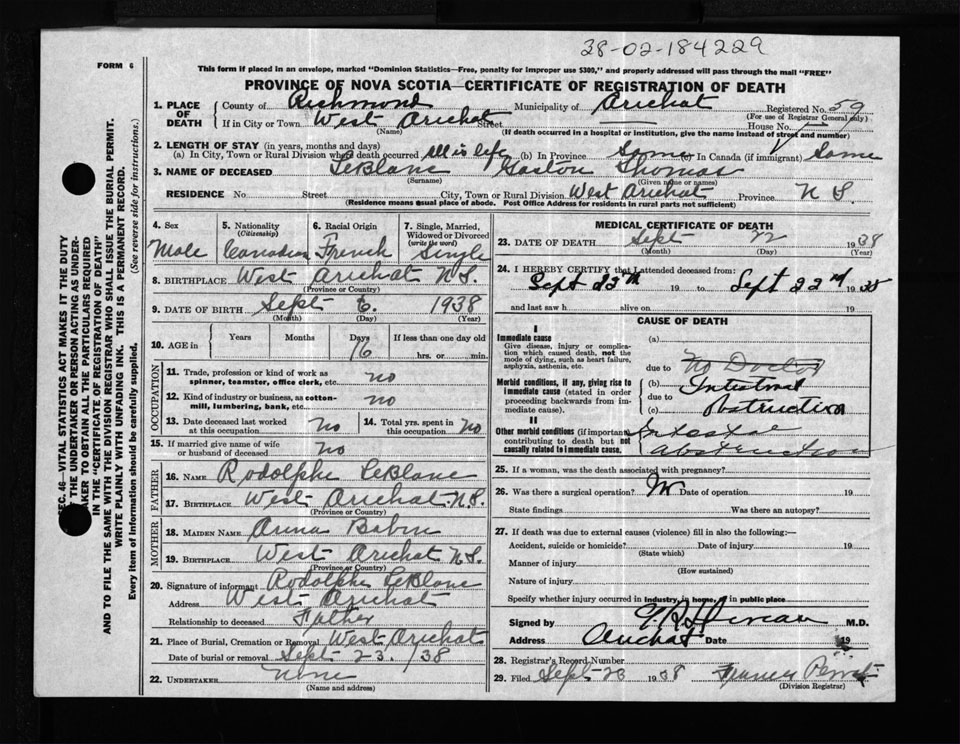 38-02-184229
FORM 6
This form if placed in an envelope, marked "Dominion Statistics—Free, penalty for improper use $300," and properly addressed will pass through the mail "FREE"
PROVINCE OF NOVA SCOTIA—CERTIFICATE OF REGISTRATION OF DEATH
SEC. 46—VITAL STATISTICS ACT MAKES IT THE DUTY
OF THE UNDERTAKER OR PERSON ACTING AS UNDER-
TAKER TO OBTAIN ALL THE PARTICULARS REQUIRED
IN THE "CERTIFICATE OF REGISTRATION OF DEATH"
AND TO FILE THE SAME WITH THE DIVISION REGISTRAR WHO SHALL ISSUE THE BURIAL PERMIT.
WRITE PLAINLY WITH UNFADING INK. THIS IS A PERMANENT RECORD.
Every item of information should be carefully supplied. (See reverse side for instructions.)
1. PLACE OF DEATH
County of Richmond Municipality of Arichat Registered No. 59
(For use of Registrar General only)
If in City or Town West Arichat Street House No.
(Name) (If death occurred in a hospital or institution, give the name instead of street and number)
2. LENGTH OF STAY (in years, months and days)
(a) In City, Town or Rural Division where death occurred All is life (b) In Province Same (c) In Canada (if immigrant) Same
3. NAME OF DECEASED LeBlanc Gaston Thomas
(Surname) (Given name or names)
RESIDENCE No Street City, Town or Rural Division West Arichat Province N S.
(Residence means usual place of abode. Post Office Address for residents in rural parts not sufficient)
4. Sex Male
5. Nationality (Citizenship) Canadian
6. Racial Origin French
7. Single, Married, Widowed or Divorced (write the word) Single
8. BIRTHPLACE West Arichat N.S.
(Province or Country)
9. DATE OF BIRTH Sept 6. 1938
(Month) (Day) (Year)
10. AGE in Years Months Days 16 If less than one day old hrs. or min.
OCCUPATION
11. Trade, profession or kind of work as spinner, teamster, office clerk, etc. no
12. Kind of industry or business, as cotton-mill, lumbering, bank, etc. no
13. Date deceased last worked at this occupation no
14. Total yrs. spent in this occupation no
15. If married give name of wife or husband of deceased no
FATHER
16. NAME Rodolphe LeBlanc
17. BIRTHPLACE West Arichat N.S.
(Province or Country)
MOTHER
18. MAIDEN NAME Anna Babin
19. BIRTHPLACE West Arichat N.S.
(Province or Country)
20. Signature of informant Rodolphe LeBlanc
Address West Arichat
Relationship to deceased Father
21. Place of Burial, Cremation or Removal West Arichat
Date of burial or removal Sept 23. /38
22. UNDERTAKER None
(Name and address)
MEDICAL CERTIFICATE OF DEATH
23. DATE OF DEATH Sept 22 1938
(Month) (Day) (Year)
24. I HEREBY CERTIFY that I attended deceased from:
Sept 22th 19 to Sept 22nd 1938
and last saw h alive on 19
CAUSE OF DEATH
I
Immediate cause
Give disease, injury or complication which caused death, not the mode of dying, such as heart failure, asphyxia, asthenia, etc.
Morbid conditions, if any, giving rise to immediate cause (stated in order proceeding backwards from immediate cause).
II
Other morbid conditions (if important) contributing to death but not causally related to immediate cause.
(a)
due to No Doctor
(b) Intestinal
due to
(c) Obstruction
Intestinal
abstruction
25. If a woman, was the death associated with pregnancy?
26. Was there a surgical operation? No Date of operation 19
State findings Was there an autopsy?
27. If death was due to external causes (violence) fill in also the following:—
Accident, suicide or homicide? Date of injury 19
(State which)
Manner of injury
(How sustained)
Nature of injury
Specify whether injury occurred in industry, in home, or in public place
Signed by M.D.
Address Arichat Date 19
28. Registrar's Record Number
29. Filed Sept 23 1938
(Division Registrar)